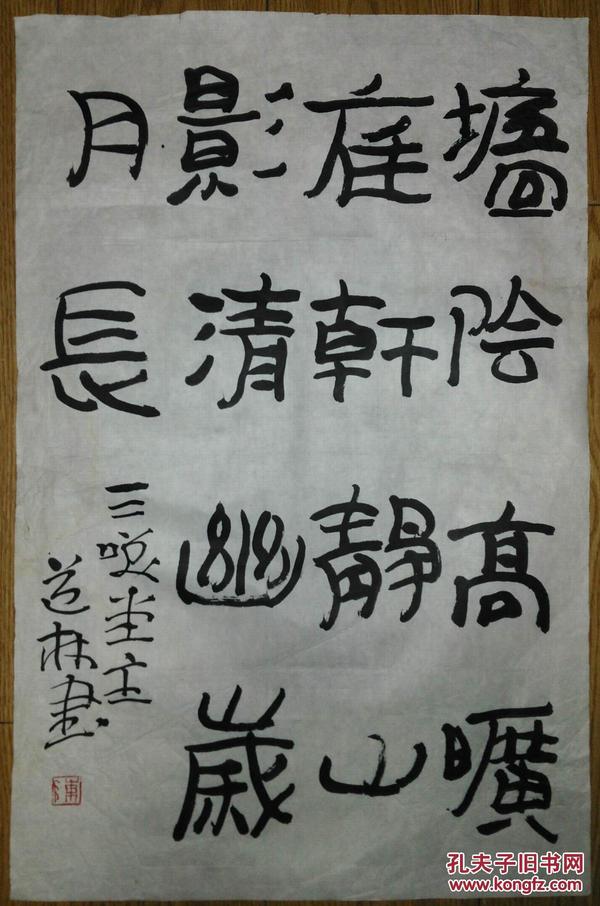 墻陰高曠
庭軒靜山
影清幽歲
月長
三咲堂主
道林書
孔夫子旧书网
www.kongfz.com